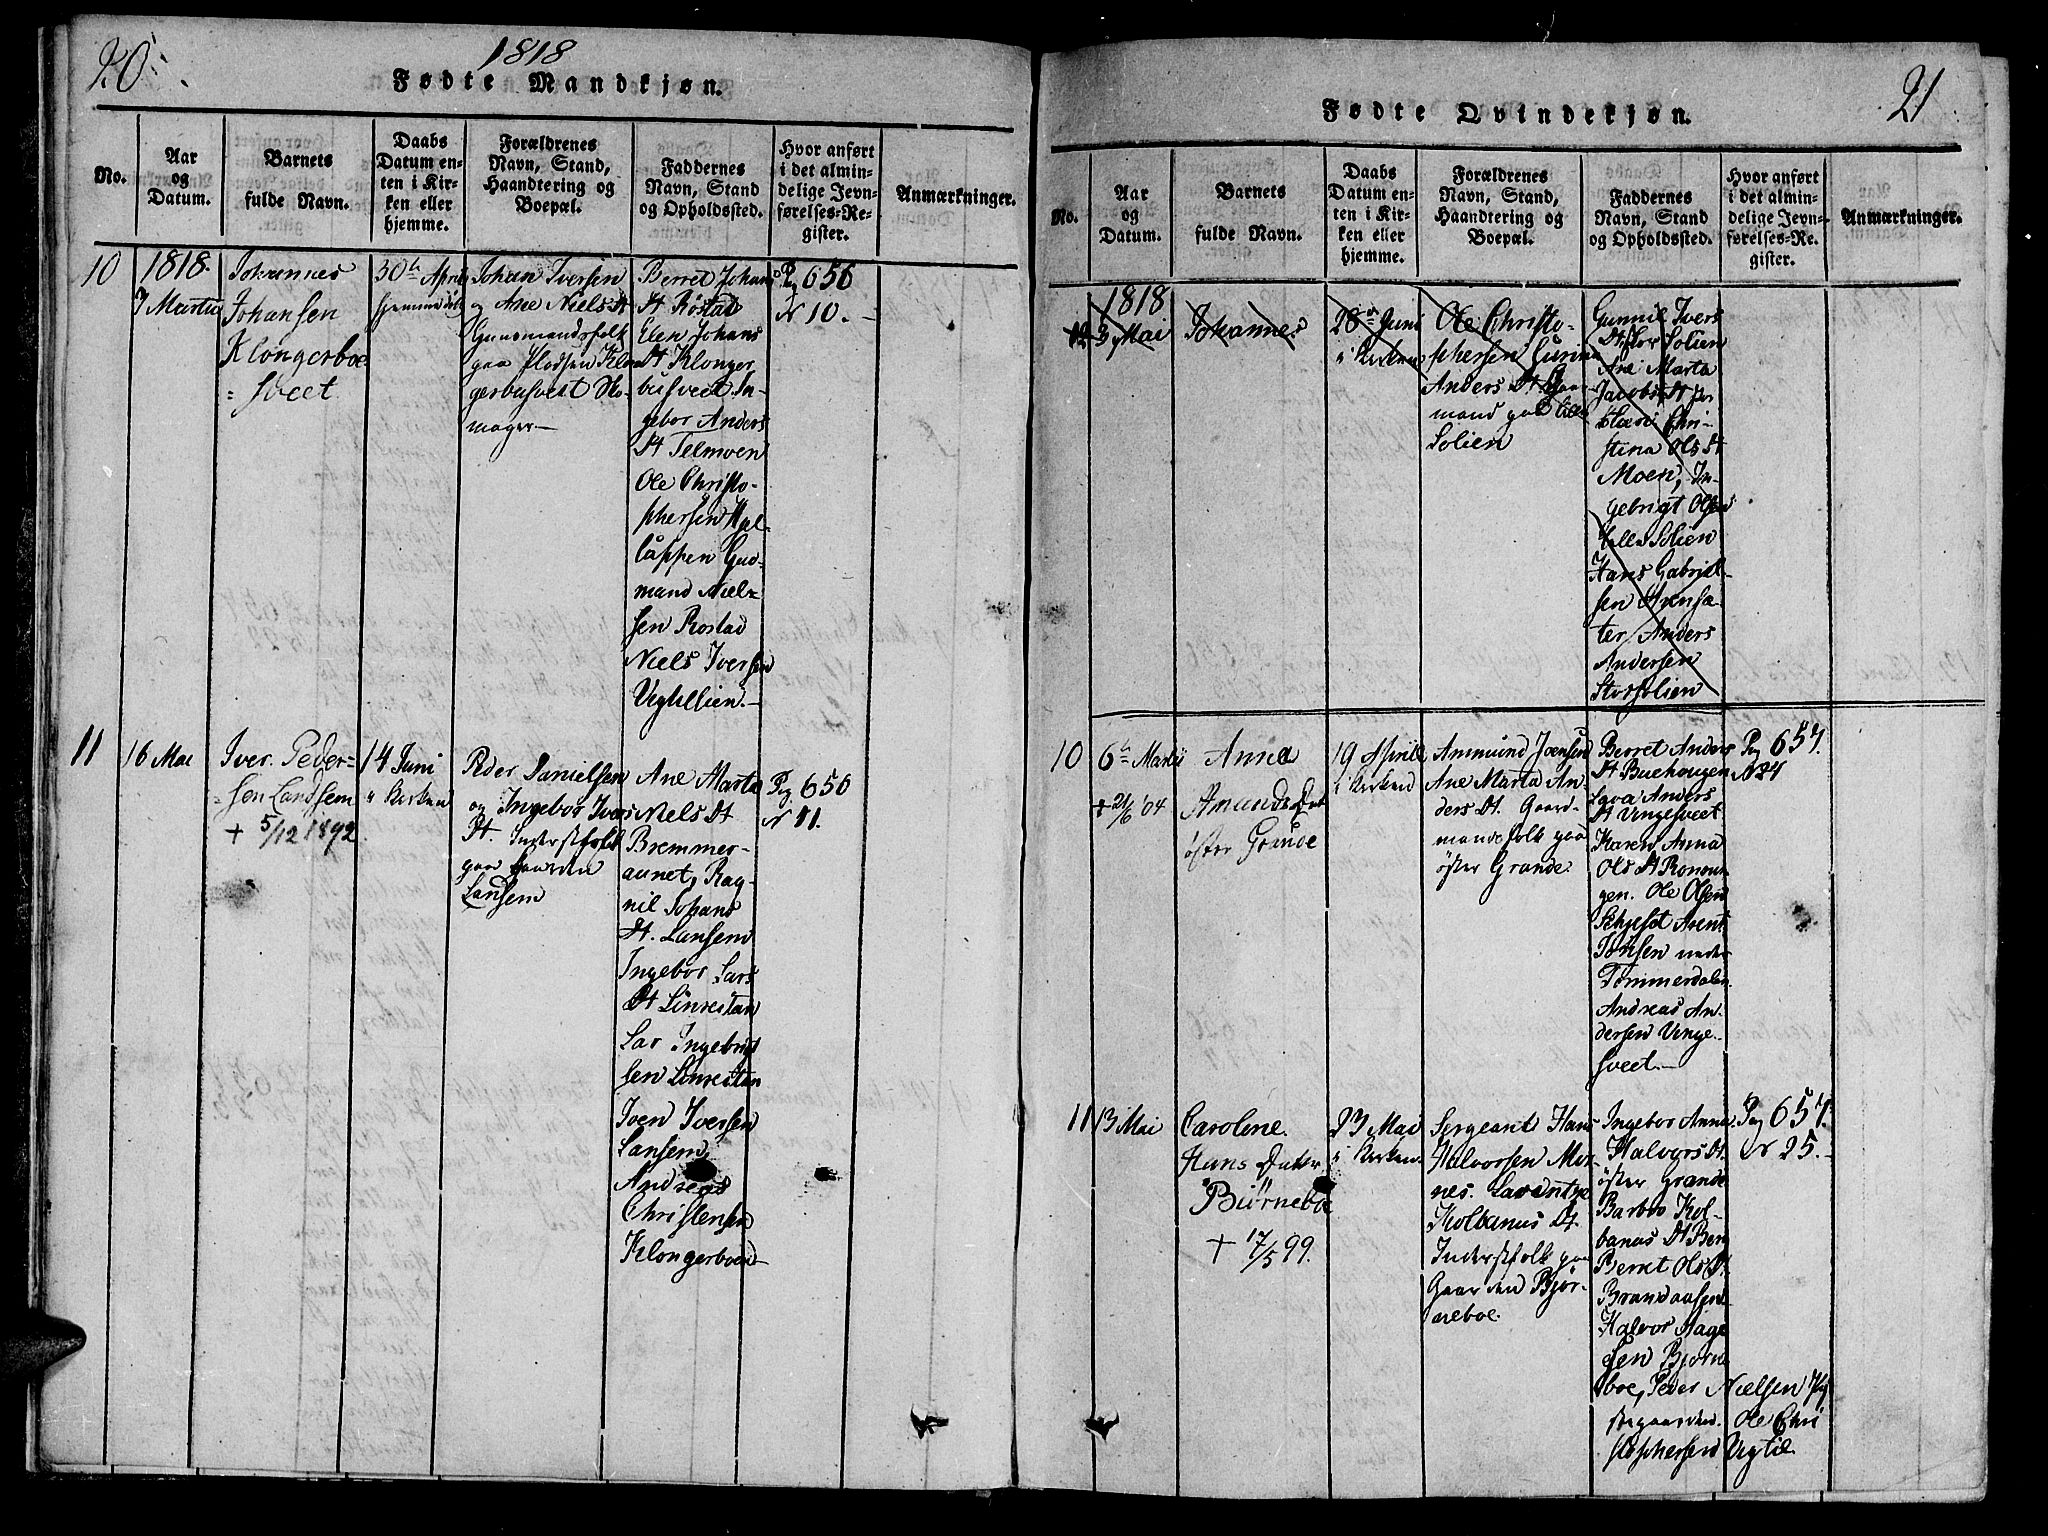 20.
1818
Fødte Mandkjøn.
No.
Aar
og
Datum.
Barnets
fulde Navn.
Daabs
Datum en-
ten i Kir-
ken eller
hjemme.
Forældrenes
Navn, Stand,
Haandtering og
Boepæl.
Faddernes
Navn, Stand
og Opholdssted.
Hvor anført
i det almin-
delige Jevn-
førelses-Re-
gister.
Anmærkninger.
10
1818.
7 Martii
Johannes
Johansen
Klongerboe
=sveet
30te April
hjemmedøbt
Johan Iversen
og Ane Niels Dt
Huusmandsfolk
paa Pladsen Klon
gerbusveet Sko-
mager
Berret Johans
Dt Röstad
Elen Johans
Dt Klonger
busveet In-
gebor Anders
Dt Telmoen
Ole Christo-
phersen
lappen Gud-
mand Niel=
sen Rostad
Niels Iversen
Pag 656
N 10.
11
16 Mai
Iver Peder=
=sen Landsem
+ 5/12 1892
14 Juni
i Kirken
Peder Danielsen
og Ingebor Ivers
Dt. Inderstfolk
paa Gaarden
Lansem
Ane Marta
Niels Dt
Bremmer-
aunet, Rag-
nil Johans
Dt. Lansem
Ingebor Lars
Dt Linrestan
Lar Ingebrigt
sen Linrestan
Iven Iversen
Lansem
Andreas
Christensen
Klongerboen
Pag 656
N 11.
21
Fødte Qvindekjøn.
No.
Aar
og
Datum.
Barnets
fulde Navn.
Daabs
Datum en-
ten i Kir-
ken eller
hjemme.
Forældrenes
Navn, Stand,
Haandtering og
Boepæl.
Faddernes
Navn, Stand
og Opholdssted.
Hvor anført
i det almin-
delige Jevn-
førelses-Re-
gister.
Anmærkninger.
1818
12
3 Mai
Johannes
28de Juni
i Kirken
Ole Christo-
phersen Gurina
Anders Dt Gaar
mand paa Lille
Solien
Gunnil Ivers
Dt Stor Solien
Ane Marta
Jacobs Dt
Chri-
stina Ols Dt
Moen, In-
gebrigt Olsen
Lille Solien
Hans Gabriel-
sen Arnsæ-
ter, Anders
Andersen
Storsolien
10
6te Martii
+ 21/6 04
Anna
Amunds Dat
öster Grande
19 Aprill
i Kirken
Ammund Joensen
Ane Marta An
ders Dt. Gaard-
mandsfolk paa
öster Grande.
Berret Anders
Dt Buehougen
Anders
Dt Vingesveet
Karen Anna
Ols Dt
gen. Ole Olsen
Arent
Tönsen neder
Tömmerdalen
Andreas An-
dersen Vinge-
sveet.
Pag 657.
N 24
11
13 Mai
Caroline.
Hans Datter
Biörneboe
+ 17/5 99.
23 Mai
i Kirken
Sergeant Hans
Halvorsen
nes.
Kolbanus Dt.
Inderstfolk paa
Gaarden Björ-
neboe.
Ingebor Anna
Halvors Dt.
öster Grande
Barbro Kol-
banus Dt
Berret Ols Dt
Brandaasen
Halvor Aage
sen Bjorne
boe, Peder Nielsen
Ole Chri
stophersen
Pag 657.
N 25.